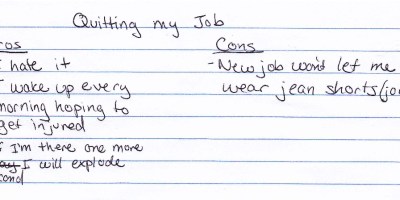 Quitting my Job
ros Cons
I hate it -New job won't let me
I wake up every wear jean shorts (jo
morning hoping to
get injured
I'm there one more
I will explode
cond